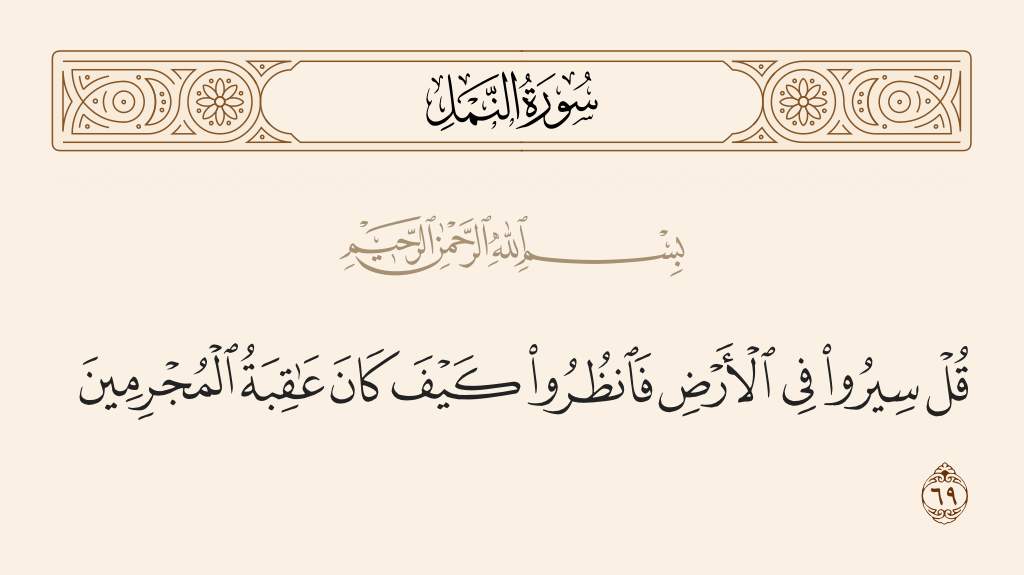 سُورَةُ النَّمْلِ
بِسْمِ ٱللَّهِ ٱلرَّحْمَٰنِ ٱلرَّحِيمِ
قُلْ سِيرُوا۟ فِى ٱلْأَرْضِ فَٱنظُرُوا۟ كَيْفَ كَانَ عَـٰقِبَةُ ٱلْمُجْرِمِينَ
٦٩